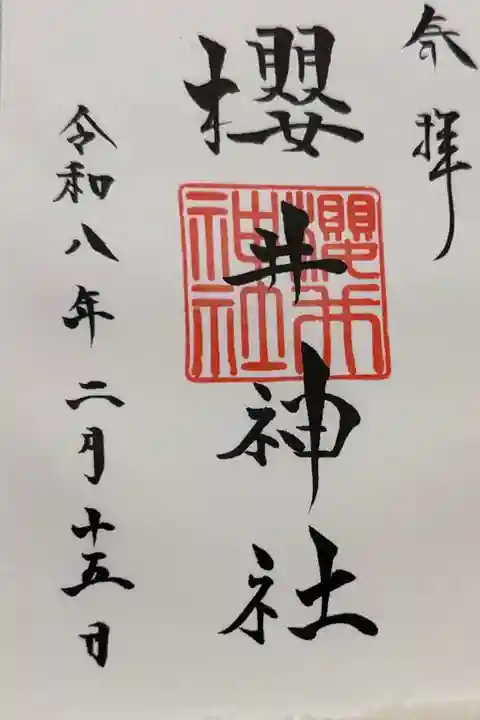 参拝
櫻井神社
櫻井
神社
令和八年二月十五日